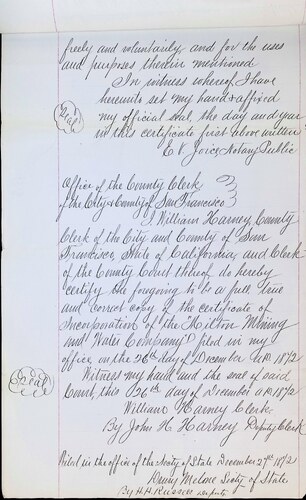 freely and voluntarily and for the uses
and purposes therein mentioned
In witness whereof I have
hereunto set my hand & affixed
my official seal the day and year
in this certificate first abov written
Seal
E V Joice Notary Public
Office of the County Clerk
of the City & County of San Francisco
I William Harney County
Clerk of the City and County of San
Francisco State of California and Clerk
of the County Court thereof do hereby
certify the foregoing to be a full true
and correct copy of the certificate of
Incorporation of the "Milton Mining
and Water Company" filed in my
office on the 26th day of December A.D. 1872
Witness my hand and the seal of said
Court, this 26th day of December A.D. 1872
Seal
William Harney Clerk
By John H. Harney Deputy Clerk
Filed in the office of the Secty of State December 27th 1872
Drury Melone Secty of State
By H. H. Russell Deputy